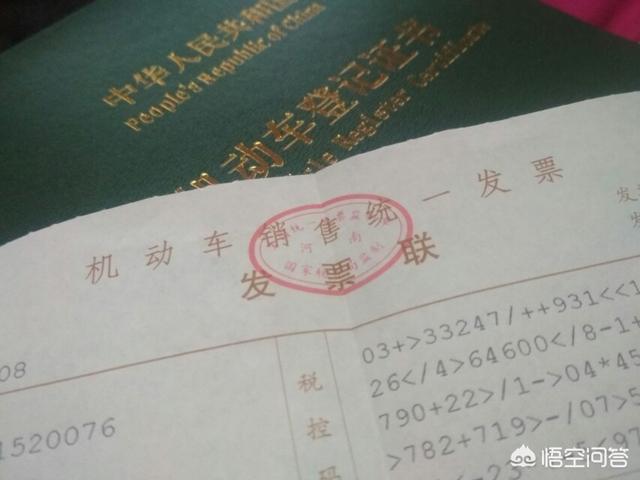 中华人民共和国
People's Republic of China
机动车登记证书
Register Certificate
机动车销售统一发票
发票联
河南
08
1520076
税控码
03+>33247/++931<<1
26</4>64600</8-1+
790+22>/1->04*45
>782+719>-/07>5
悟空问答